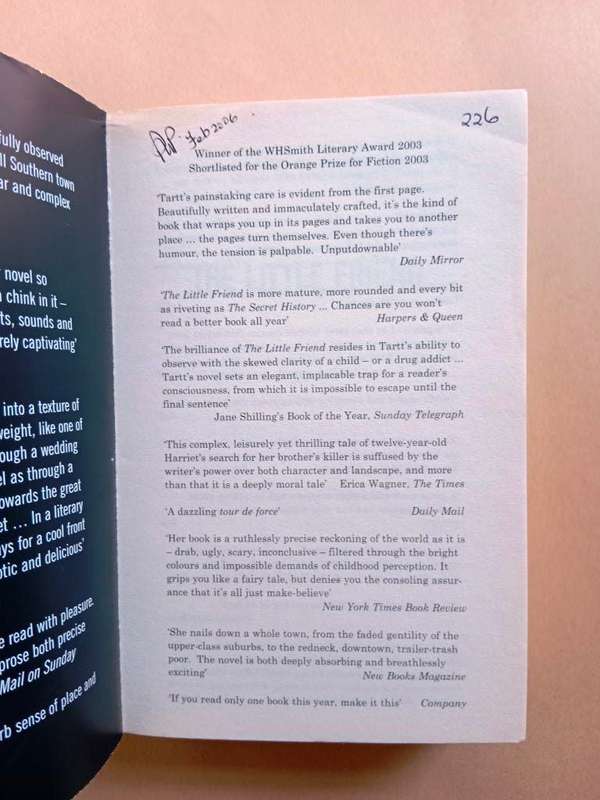 fully observed
ll Southern town
ar and complex
novel so
chink in it –
ts, sounds and
rely captivating'
into a texture of
weight, like one of
ough a wedding
el as through a
owards the great
et ... In a literary
ays for a cool front
otic and delicious'
e read with pleasure.
prose both precise
Mail on Sunday
rb sense of place and
Feb 2006
226
Winner of the WHSmith Literary Award 2003
Shortlisted for the Orange Prize for Fiction 2003
'Tartt's painstaking care is evident from the first page.
Beautifully written and immaculately crafted, it's the kind of
book that wraps you up in its pages and takes you to another
place ... the pages turn themselves. Even though there's
humour, the tension is palpable. Unputdownable'
Daily Mirror
'The Little Friend is more mature, more rounded and every bit
as riveting as The Secret History ... Chances are you won't
read a better book all year' Harpers & Queen
'The brilliance of The Little Friend resides in Tartt's ability to
observe with the skewed clarity of a child – or a drug addict ...
Tartt's novel sets an elegant, implacable trap for a reader's
consciousness, from which it is impossible to escape until the
final sentence'
Jane Shilling's Book of the Year, Sunday Telegraph
'This complex, leisurely yet thrilling tale of twelve-year-old
Harriet's search for her brother's killer is suffused by the
writer's power over both character and landscape, and more
than that it is a deeply moral tale' Erica Wagner, The Times
'A dazzling tour de force' Daily Mail
'Her book is a ruthlessly precise reckoning of the world as it is
– drab, ugly, scary, inconclusive – filtered through the bright
colours and impossible demands of childhood perception. It
grips you like a fairy tale, but denies you the consoling assur-
ance that it's all just make-believe'
New York Times Book Review
'She nails down a whole town, from the faded gentility of the
upper-class suburbs, to the redneck, downtown, trailer-trash
poor. The novel is both deeply absorbing and breathlessly
exciting' New Books Magazine
'If you read only one book this year, make it this' Company